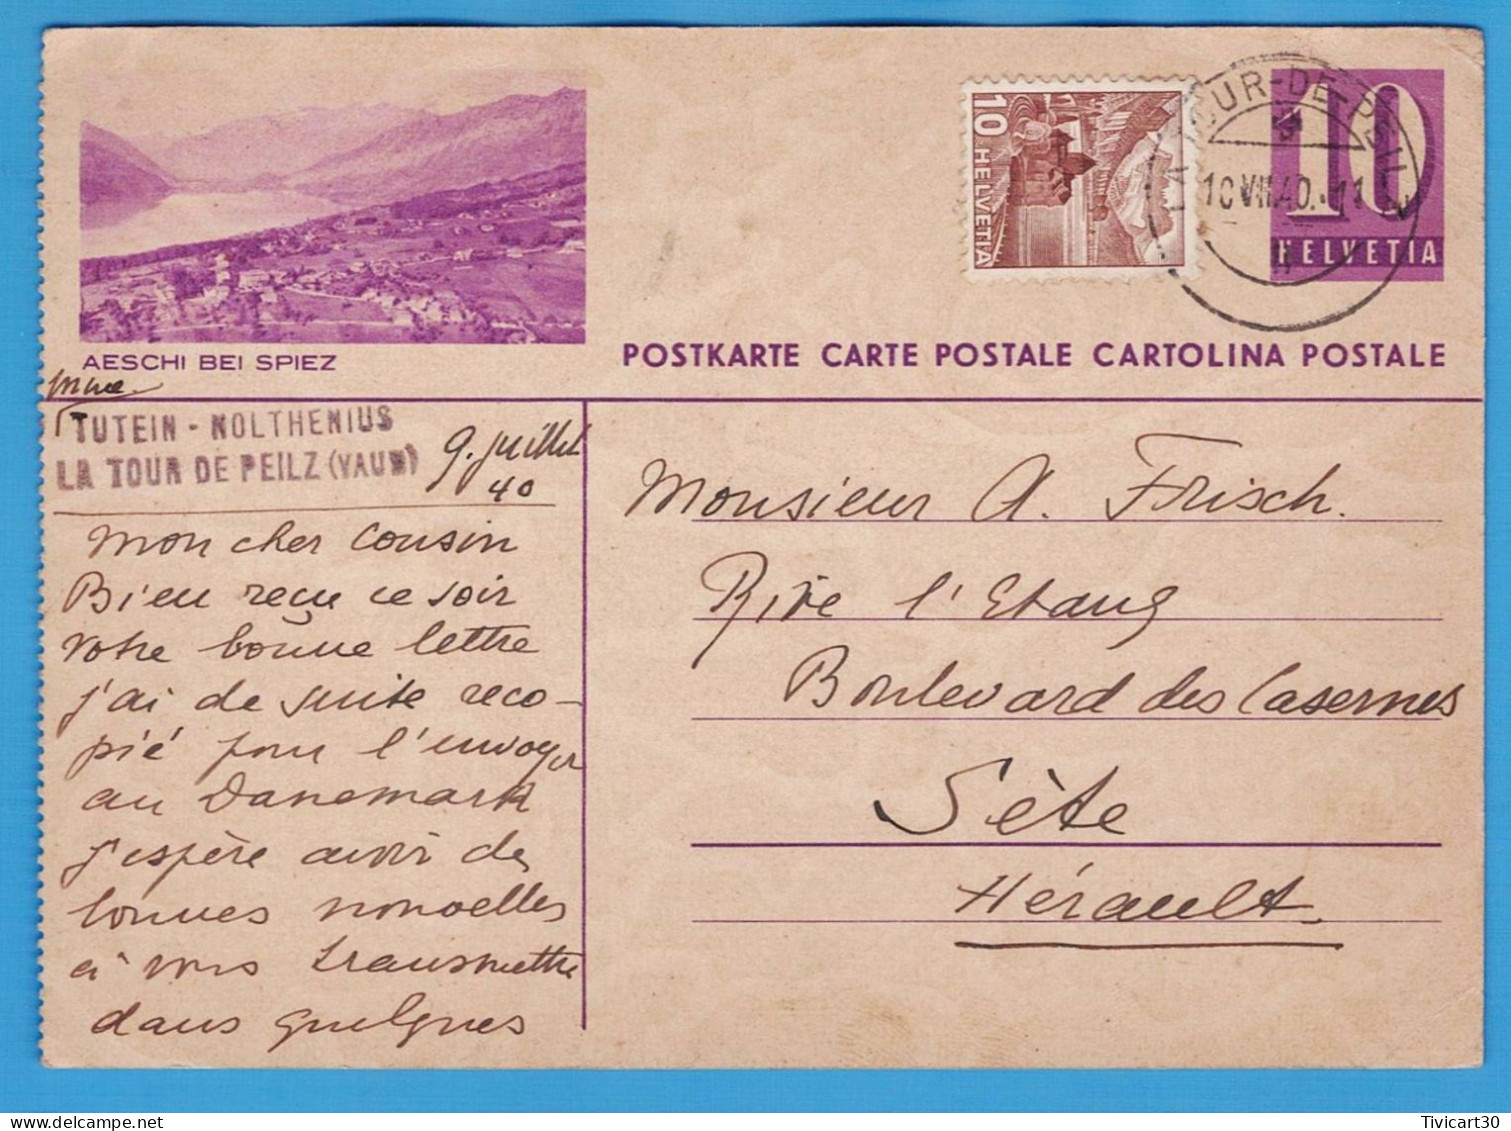 AESCHI BEI SPIEZ
10
HELVETIA
LA TOUR-DE-PEILZ
10 VII.40.-11
10
HELVETIA
POSTKARTE CARTE POSTALE CARTOLINA POSTALE
Mme
TUTEIN - NOLTHENIUS
LA TOUR DE PEILZ (VAUD)
9. juillet
40
Mon cher Cousin
Bien reçu ce soir
votre bonne lettre
j'ai de suite reco-
pié pour l'envoyer
au Danemark
j'espère avoir de
bonnes nouvelles
à vous transmettre
dans quelques
Monsieur A. Frisch.
Rive l'Etang
Boulevard des Casernes
Sète
Hérault.
Tivicart30